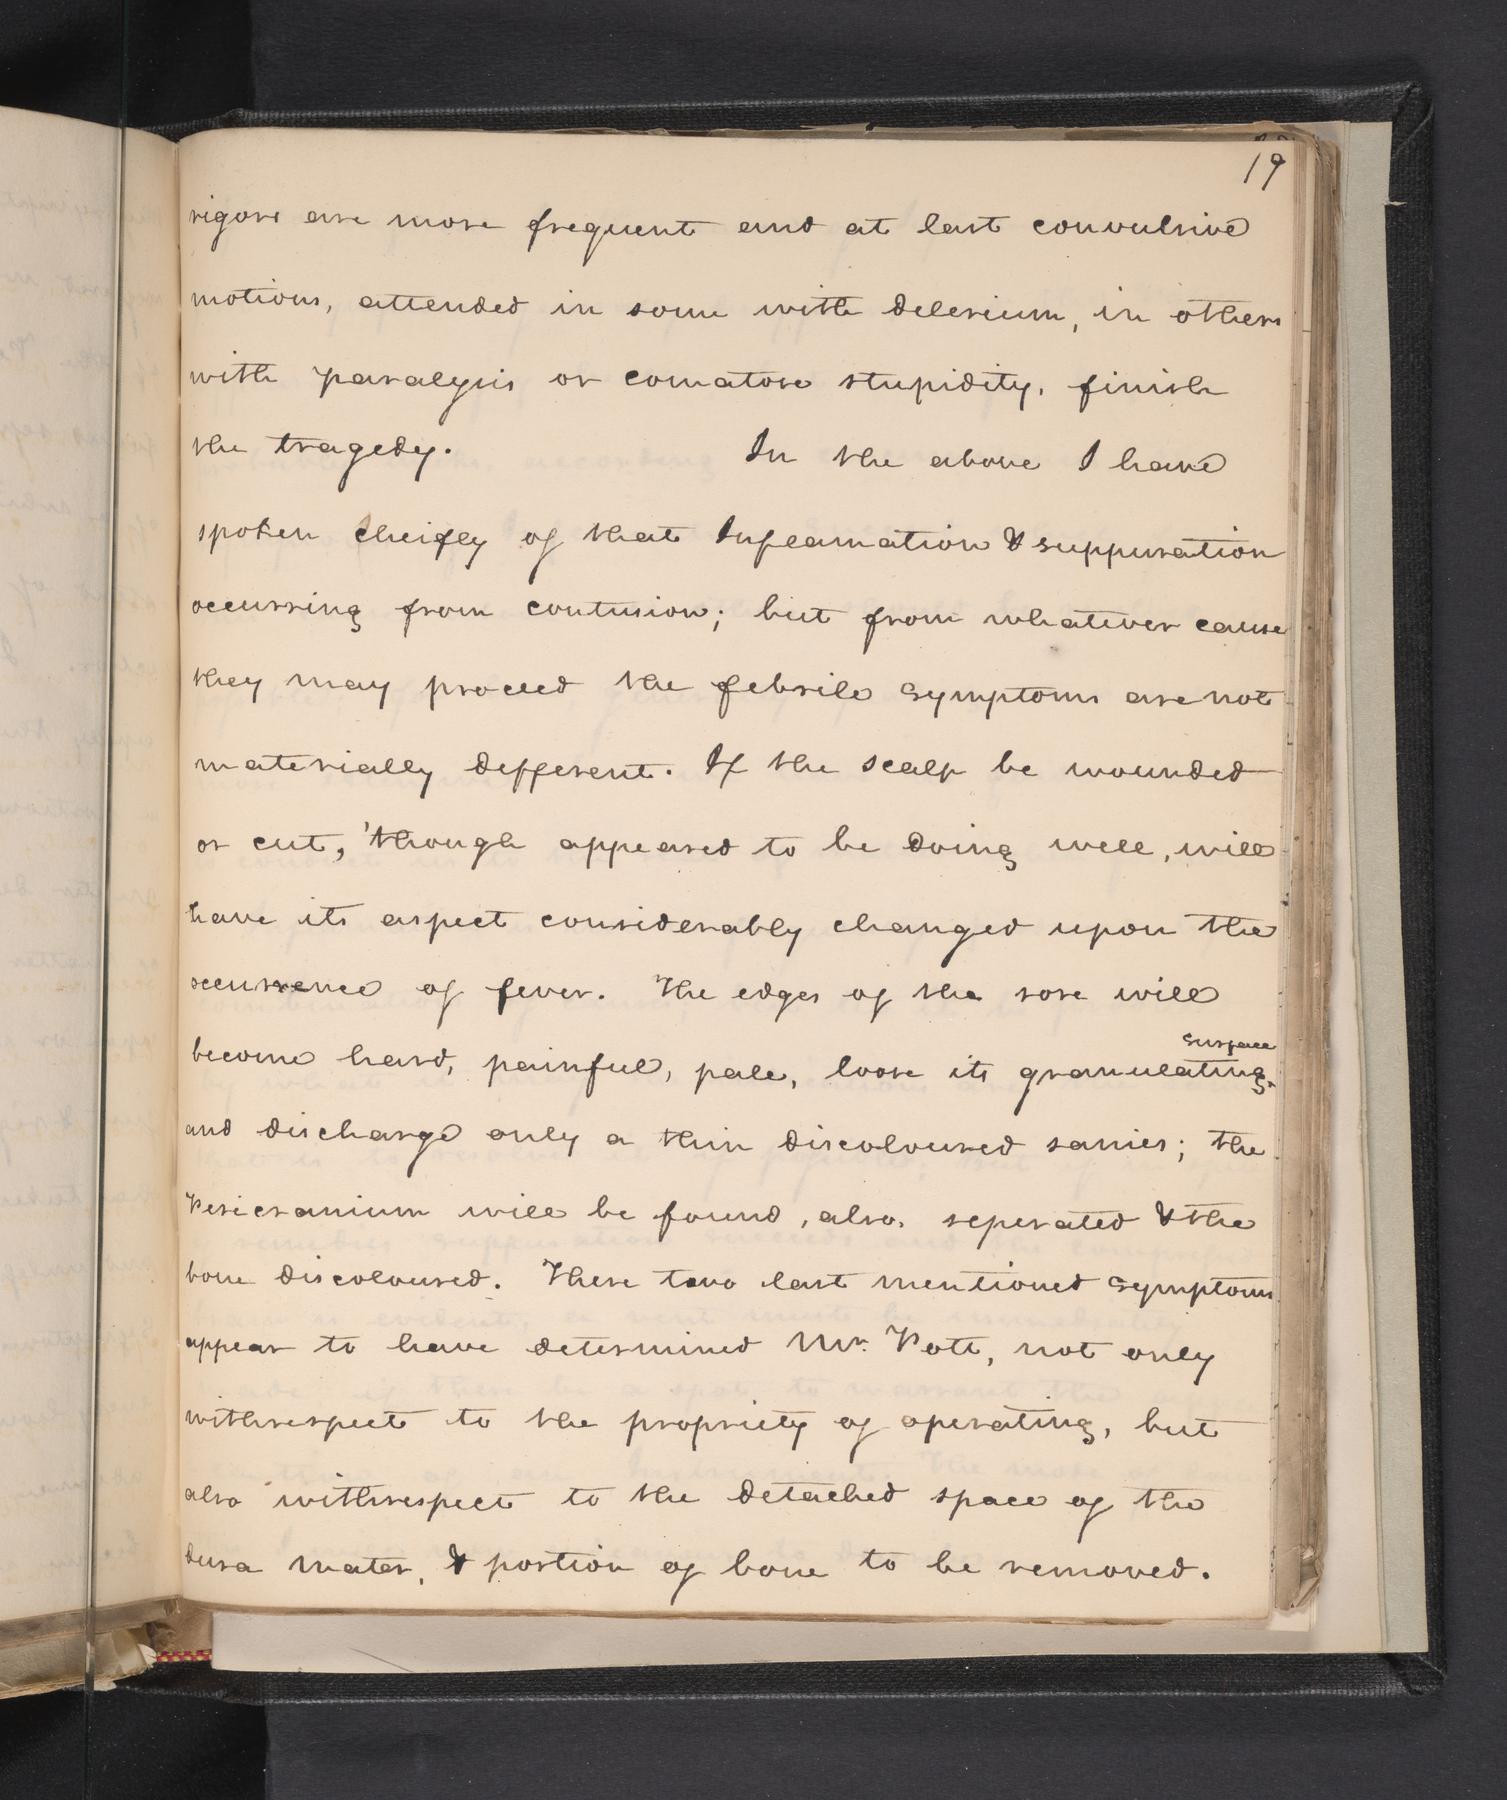 19
rigors are more frequent and at last convulsive
motions, attended in some with delerium, in others
with paralysis or comatose stupidity, finish
the tragedy. In the above I have
spoken cheifly of that Inflamation & suppuration
occurring from contusion; but from whatever cause
they may proceed the febrile symptoms are not
materially different. If the scalp be wounded
or cut, 'though appeared to be doing well, will
have its aspect considerably changed upon the
occurrence of fever. The edges of the sore will
become hard, painful, pale, loose its granulating surface
and discharge only a thin discoloured sanies; the
Pericranium will be found, also, seperated & the
bone discoloured. These two last mentioned symptoms
appear to have determined Mr. Pott, not only
withrespect to the propriety of operating, but
also withrespect to the detached space of the
dura mater, & portion of bone to be removed.